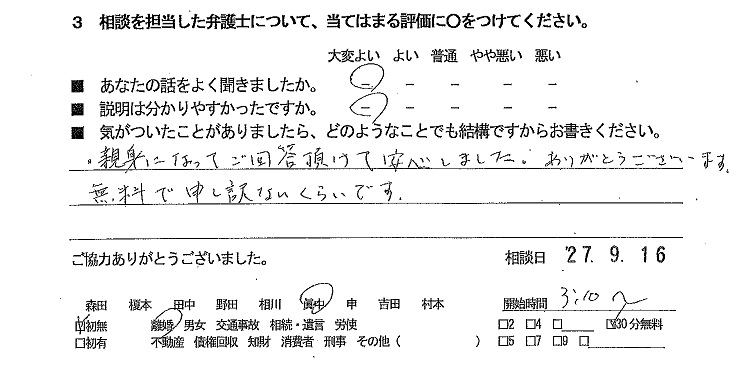 3 相談を担当した弁護士について、当てはまる評価に〇をつけてください。
大変よい よい 普通 やや悪い 悪い
■ あなたの話をよく聞きましたか。 － － － － －
■ 説明は分かりやすかったですか。 － － － － －
■ 気がついたことがありましたら、どのようなことでも結構ですからお書きください。
・親身になってご回答頂けて安心しました。ありがとうございます。
無料で申し訳ないくらいです。
ご協力ありがとうございました。 相談日 '27. 9. 16
森田 榎本 田中 野田 相川 眞中 申 吉田 村本 開始時間 3:10〜
☑初無 離婚 男女 交通事故 相続・遺言 労使 □2 □4 □ ☑30分無料
□初有 不動産 債権回収 知財 消費者 刑事 その他（ ） □5 □7 □9 □